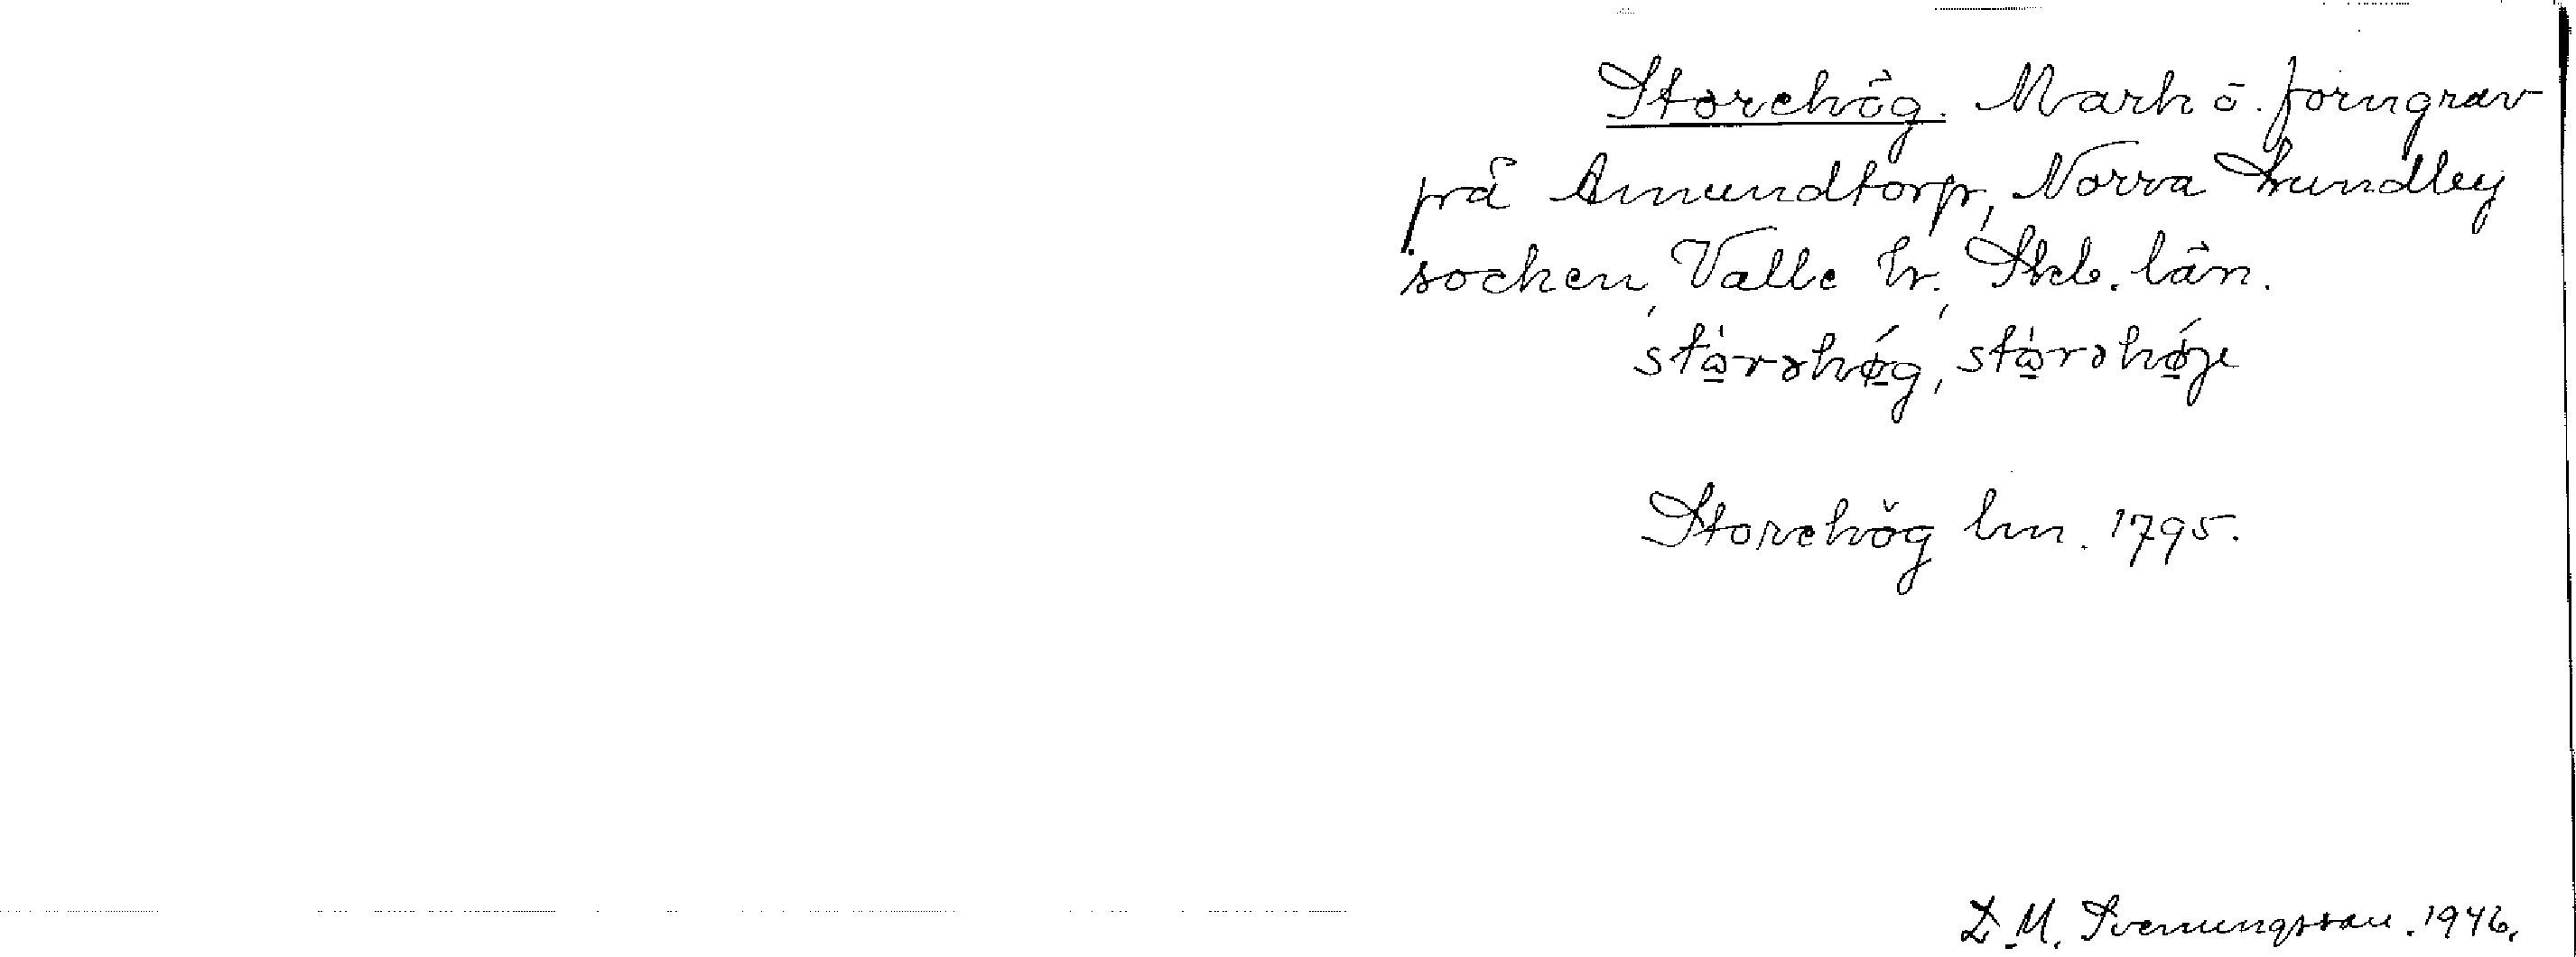 Storehög. Mark o. forngrav
på Amundtorp, Norra Lundby
socken, Valle hr., Skb. län.
stὼrəhǿg, stὼrəhǿje
Storehög lm. 1795.
L. M. Svenungsson. 1946.